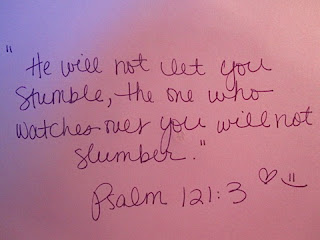 "He will not let you
Stumble, the one who
watches over you will not
slumber."
Psalm 121:3 ♡=)